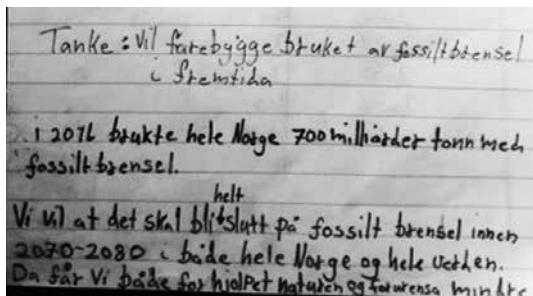 Tanke : Vil førebygge bruket av fossilt brensel
i fremtida
i 2016 brukte hele Norge 700 milliarder tonn med
fossilt brensel.
helt
Vi vil at det skal bli slutt på fossilt brensel innen
2070-2080 i både hele Norge og hele verden.
Da får Vi både for hjolpet naturen og forurensa mindre